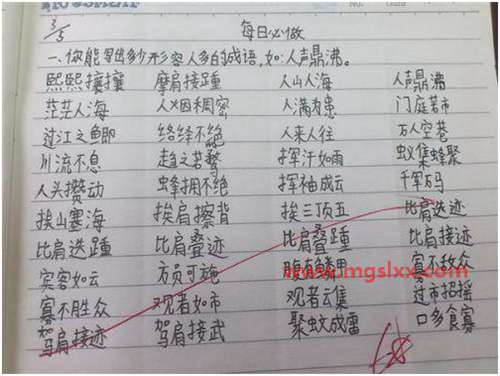 3/5
每日必做
一、你能写出多少形容人多的成语,如:人声鼎沸。
熙熙攘攘 摩肩接踵 人山人海 人声鼎沸
茫茫人海 人烟稠密 人满为患 门庭若市
过江之鲫 络绎不绝 人来人往 万人空巷
川流不息 趋之若鹜 挥汗如雨 蚁集蜂聚
人头攒动 蜂拥不绝 挥袖成云 千军万马
挨山塞海 挨肩擦背 挨三顶五 比肩迭迹
比肩迭踵 比肩叠迹 比肩叠踵 比肩接迹
宾客如云 方员可施 寡不敌众
寡不胜众 观者如市 观者云集 过市招摇
驾肩接迹 驾肩接武 聚蚊成雷 口多食寡
www.mgslxx.com